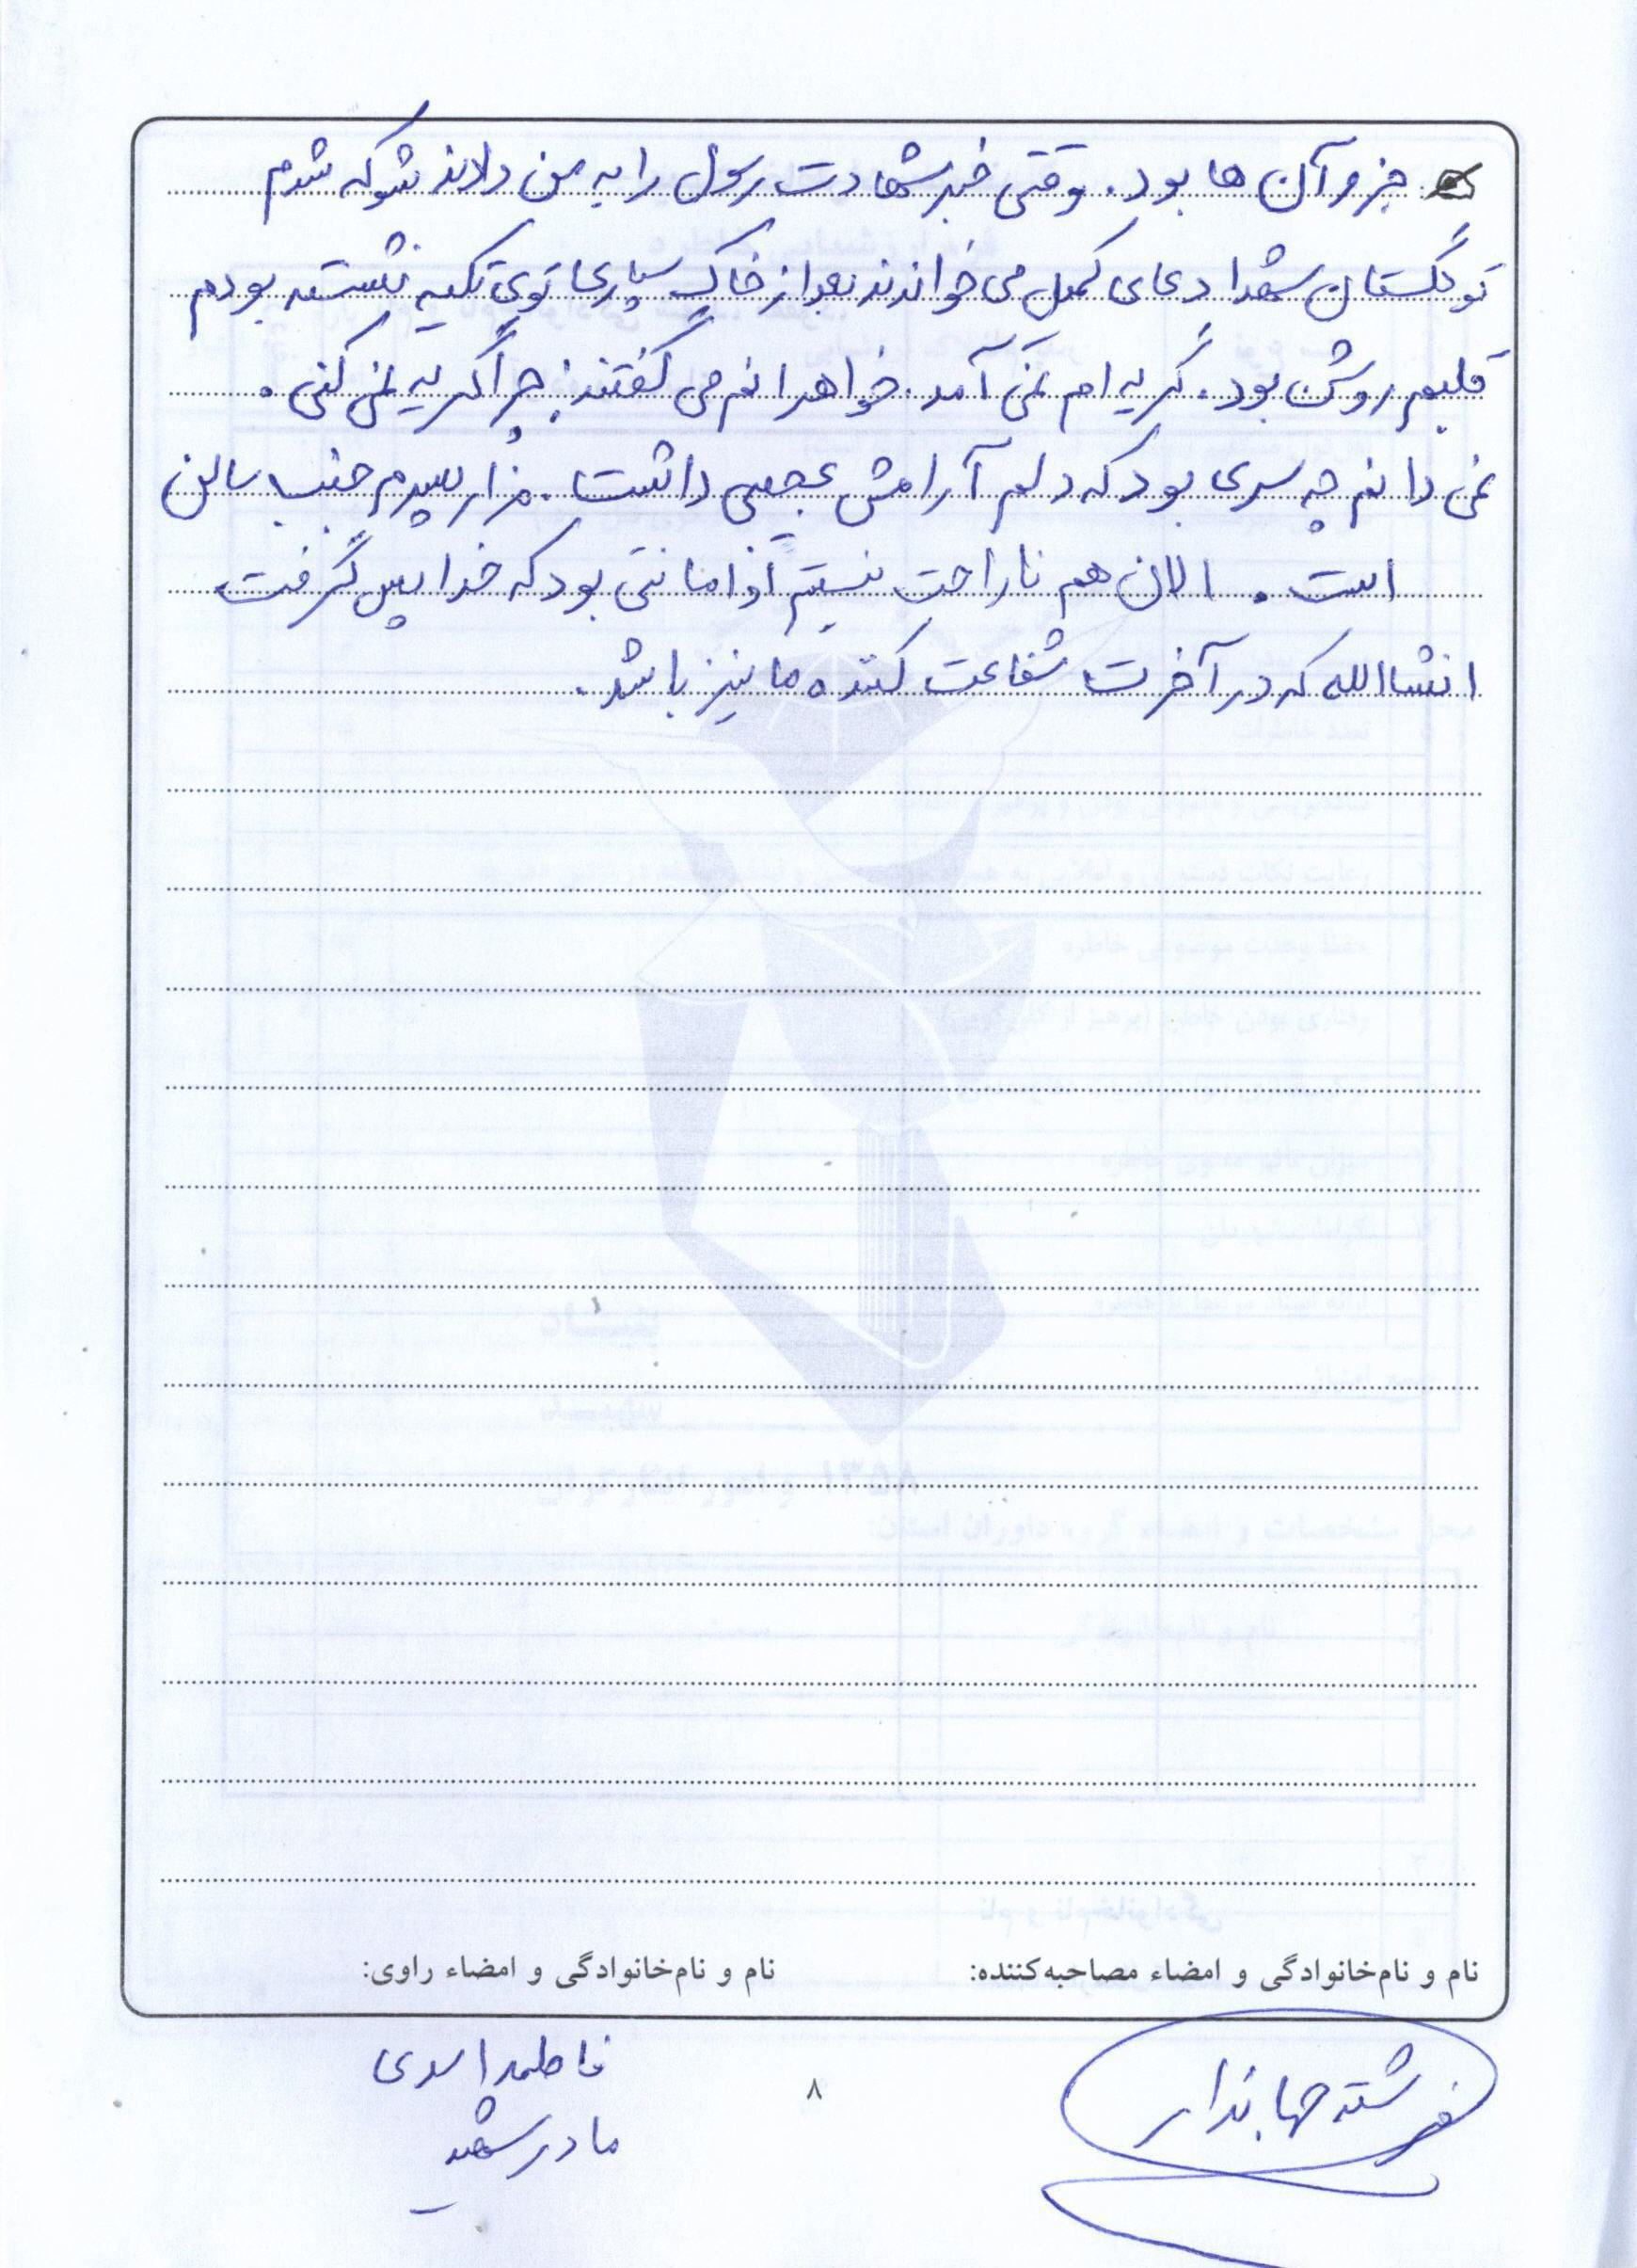 جزو آن ها بود. وقتی خبر شهادت رسول را به من دادند شوکه شدم
تو گلستان شهدا دعای کمیل می خواندند بعد از خاک سپاری توی تکیه نشسته بودم
قلبم روشن بود. گریه ام نمی آمد. خواهرانم می گفتند: چرا گریه نمی کنی.
نمی دانم چه سری بود که دلم آرامش عجیبی داشت. مزار پسرم جنب سالن
است. الان هم ناراحت نیستم او امانتی بود که خدا پس گرفت
انشاالله که در آخرت شفاعت کننده ما نیز باشد.
نام و نام‌خانوادگی و امضاء مصاحبه‌کننده: نام و نام‌خانوادگی و امضاء راوی:
فرشته جهاندار فاطمه اسدی
مادر شهید
۸